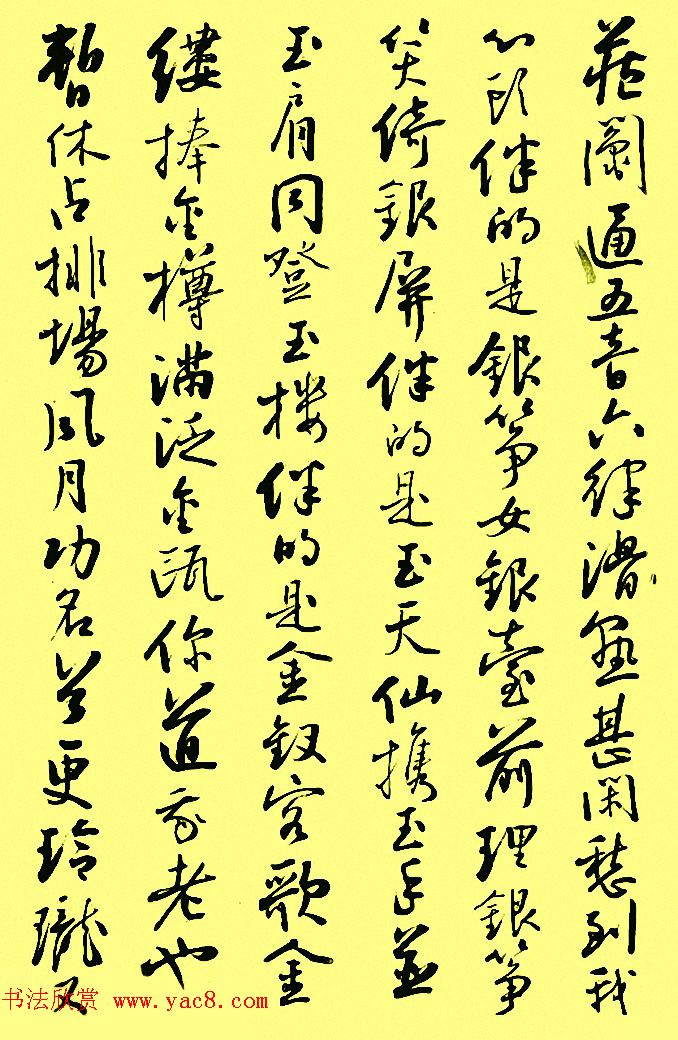 藏鬮通五音六律滑熟甚閑愁到我
心頭伴的是銀箏女銀臺前理銀箏
笑倚銀屏伴的是玉天仙携玉手並
玉肩同登玉楼伴的是金釵客歌金
縷捧金樽满泛金甌你道我老也
暫休占排場風月功名首更玲瓏又
书法欣赏 www.yac8.com